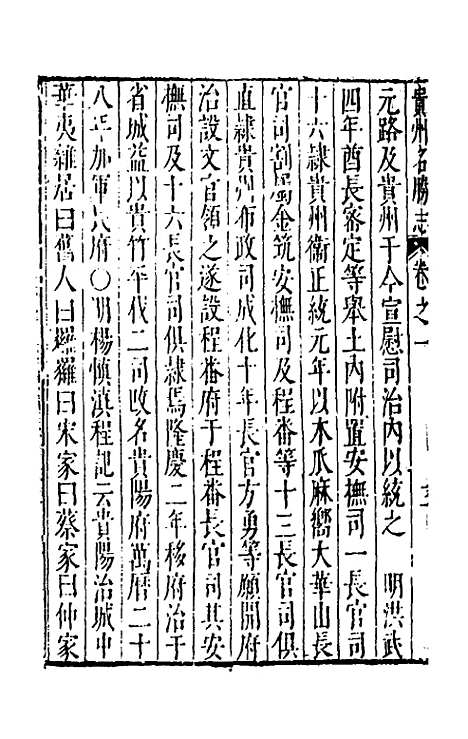 貴州名勝志 卷之一
元路及貴州于今宣慰司治內以統之 明洪武
四年酋長審定等舉土內附置安撫司一長官司
十六隸貴州衞正統元年以木瓜麻嚮大華山長
官司割屬金筑安撫司及程番等十三長官司俱
直隸貴州布政司成化十年長官方勇等願開府
治設文官領之遂設程番府于程番長官司其安
撫司及十六長官司俱隸焉隆慶二年移府治于
省城益以貴竹平伐二司改名貴陽府萬曆二十
八年加軍民府〇明楊慎滇程記云貴陽治城中
華夷雜居曰舊人曰玀羅曰宋家曰蔡家曰仲家